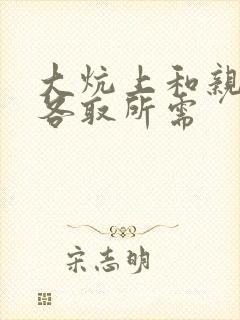 大炕上和親
各取所需
宋志明